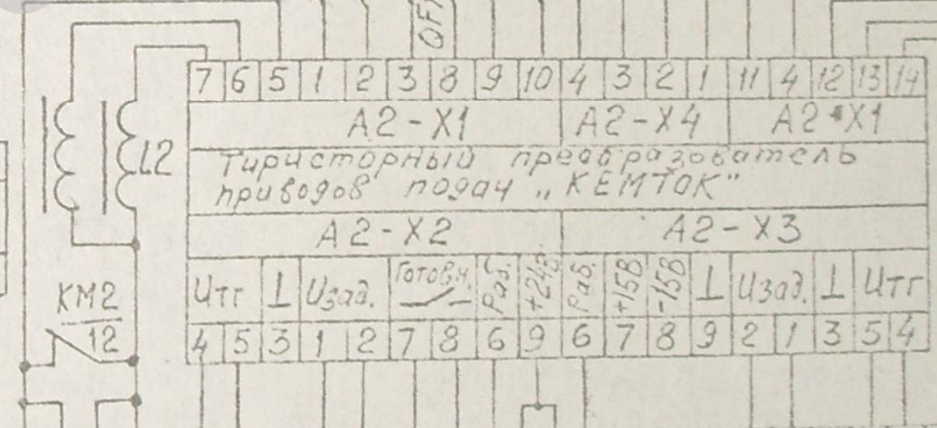 QF
7 6 5 1 2 3 8 9 10 4 3 2 1 11 4 12 13 14
A2-X1 A2-X4 A2-X1
L2
Тиристорный преобразователь
приводов подач „КЕМТОК"
A2-X2 A2-X3
КМ2
12
Uтг ⊥ Uзад. Готовн. Раб. +24В Раб. +15В -15В ⊥ Uзад. ⊥ Uтг
4 5 3 1 2 7 8 6 9 6 7 8 9 2 1 3 5 4